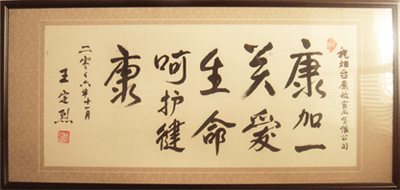 祝烟台康
有限公司
康加一
关爱
生命
呵护健
康
二零零六年十一月
王定烈